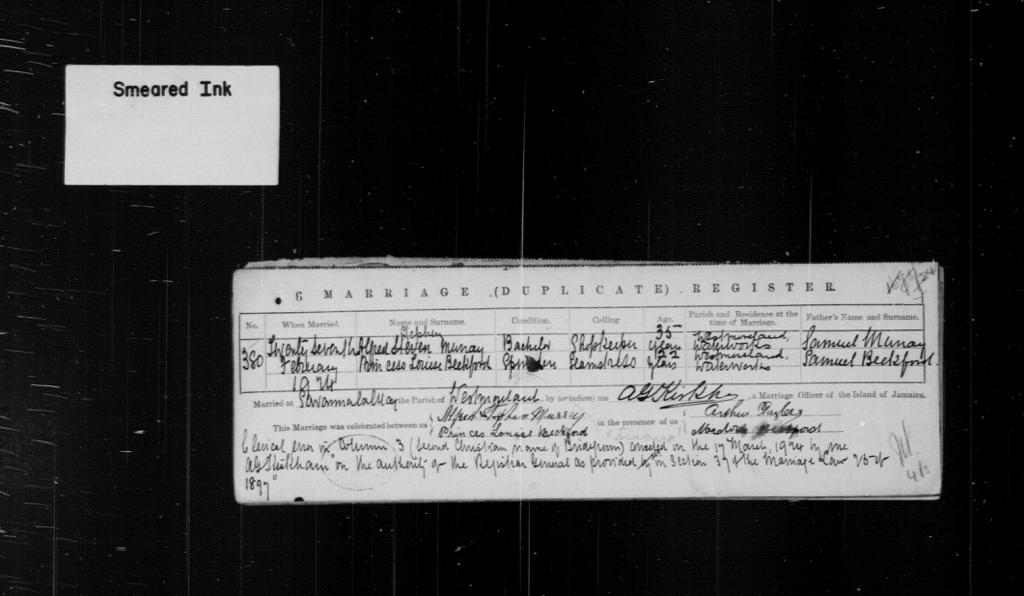 Smeared Ink
6 MARRIAGE (DUPLICATE) REGISTER.
No. When Married. Name and Surname. Condition. Calling Age. Parish and Residence at the time of Marriage. Father's Name and Surname.
Stephen 35
380 Twenty seventh Alfred Steven Murray Bachelor Shopkeeper years Westmoreland, Waterworks Samuel Murray
February Princess Louise Beckford Spinster Seamstress 22 years Westmoreland, Waterworks Samuel Beckford
1924
Married at Savannalamar the Parish of Westmoreland by (or before) me AG Kirkham, a Marriage Officer of the Island of Jamaica.
This Marriage was celebrated between us Alfred Stephen Murray in the presence of us Arthur
Princess Louise Beckford Beckford
Clerical error in "Column 3 (second Christian name of Bridegroom) corrected on the 17 March, 1924 by me
AG Kirkham" on the authority of the Registrar General as provided by in Section 37 of the Marriage Law 25 of
1897"
4/3